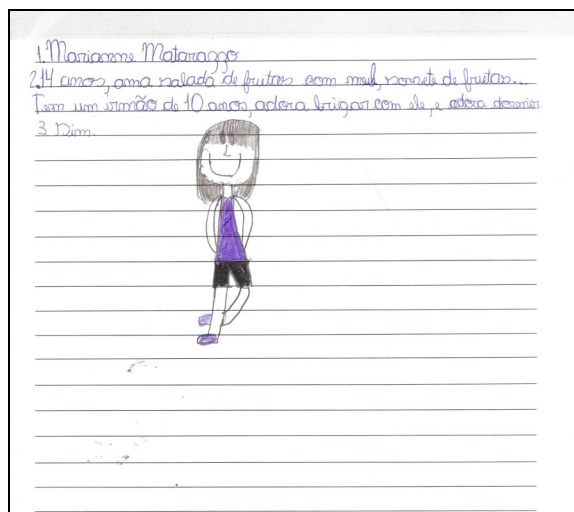 1. Marianne Matarazzo
2. 14 anos, ama salada de frutas com mel, sorvete de frutas...
Tem um irmão de 10 anos, adora brigar com ele, e adora dormir
3 Sim.